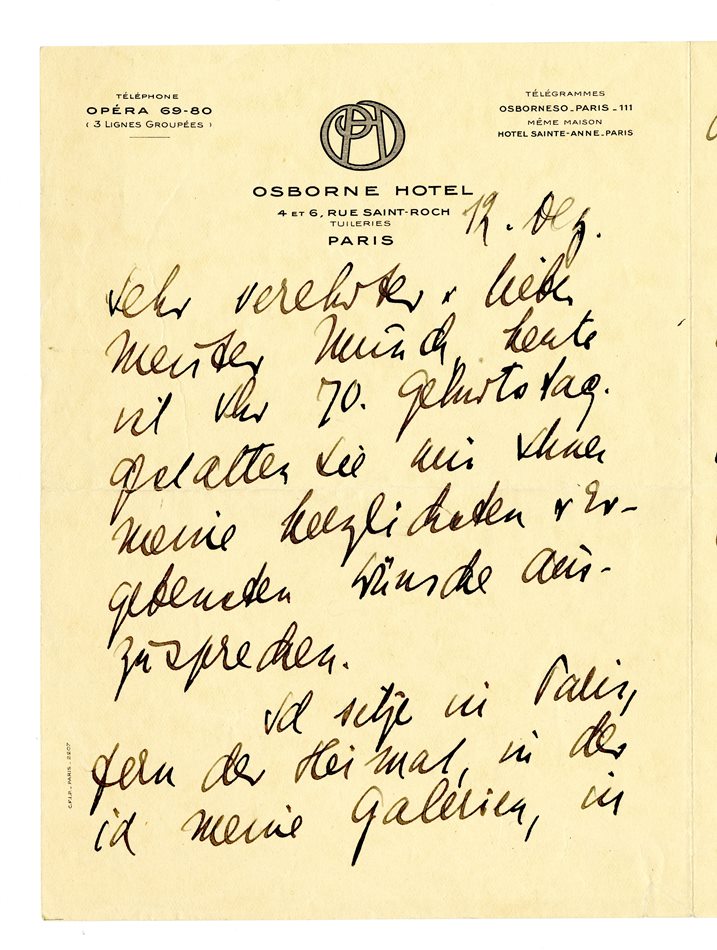 TÉLÉPHONE
OPÉRA 69-80
( 3 LIGNES GROUPÉES )
TÉLÉGRAMMES
OSBORNESO_PARIS_111
MÊME MAISON
HOTEL SAINTE-ANNE_PARIS
OHP
OSBORNE HOTEL
4 ET 6, RUE SAINT-ROCH
TUILERIES
PARIS
12. Dez.
Sehr verehrter + lieber
Meister Munch, heute
ist Ihr 70. Geburtstag.
Gestatten Sie mir Ihnen
meine herzlichsten + er-
gebensten Wünsche aus-
zusprechen.
Ich sitze in Paris,
fern der Heimat, in der
ich meine Galerien, in